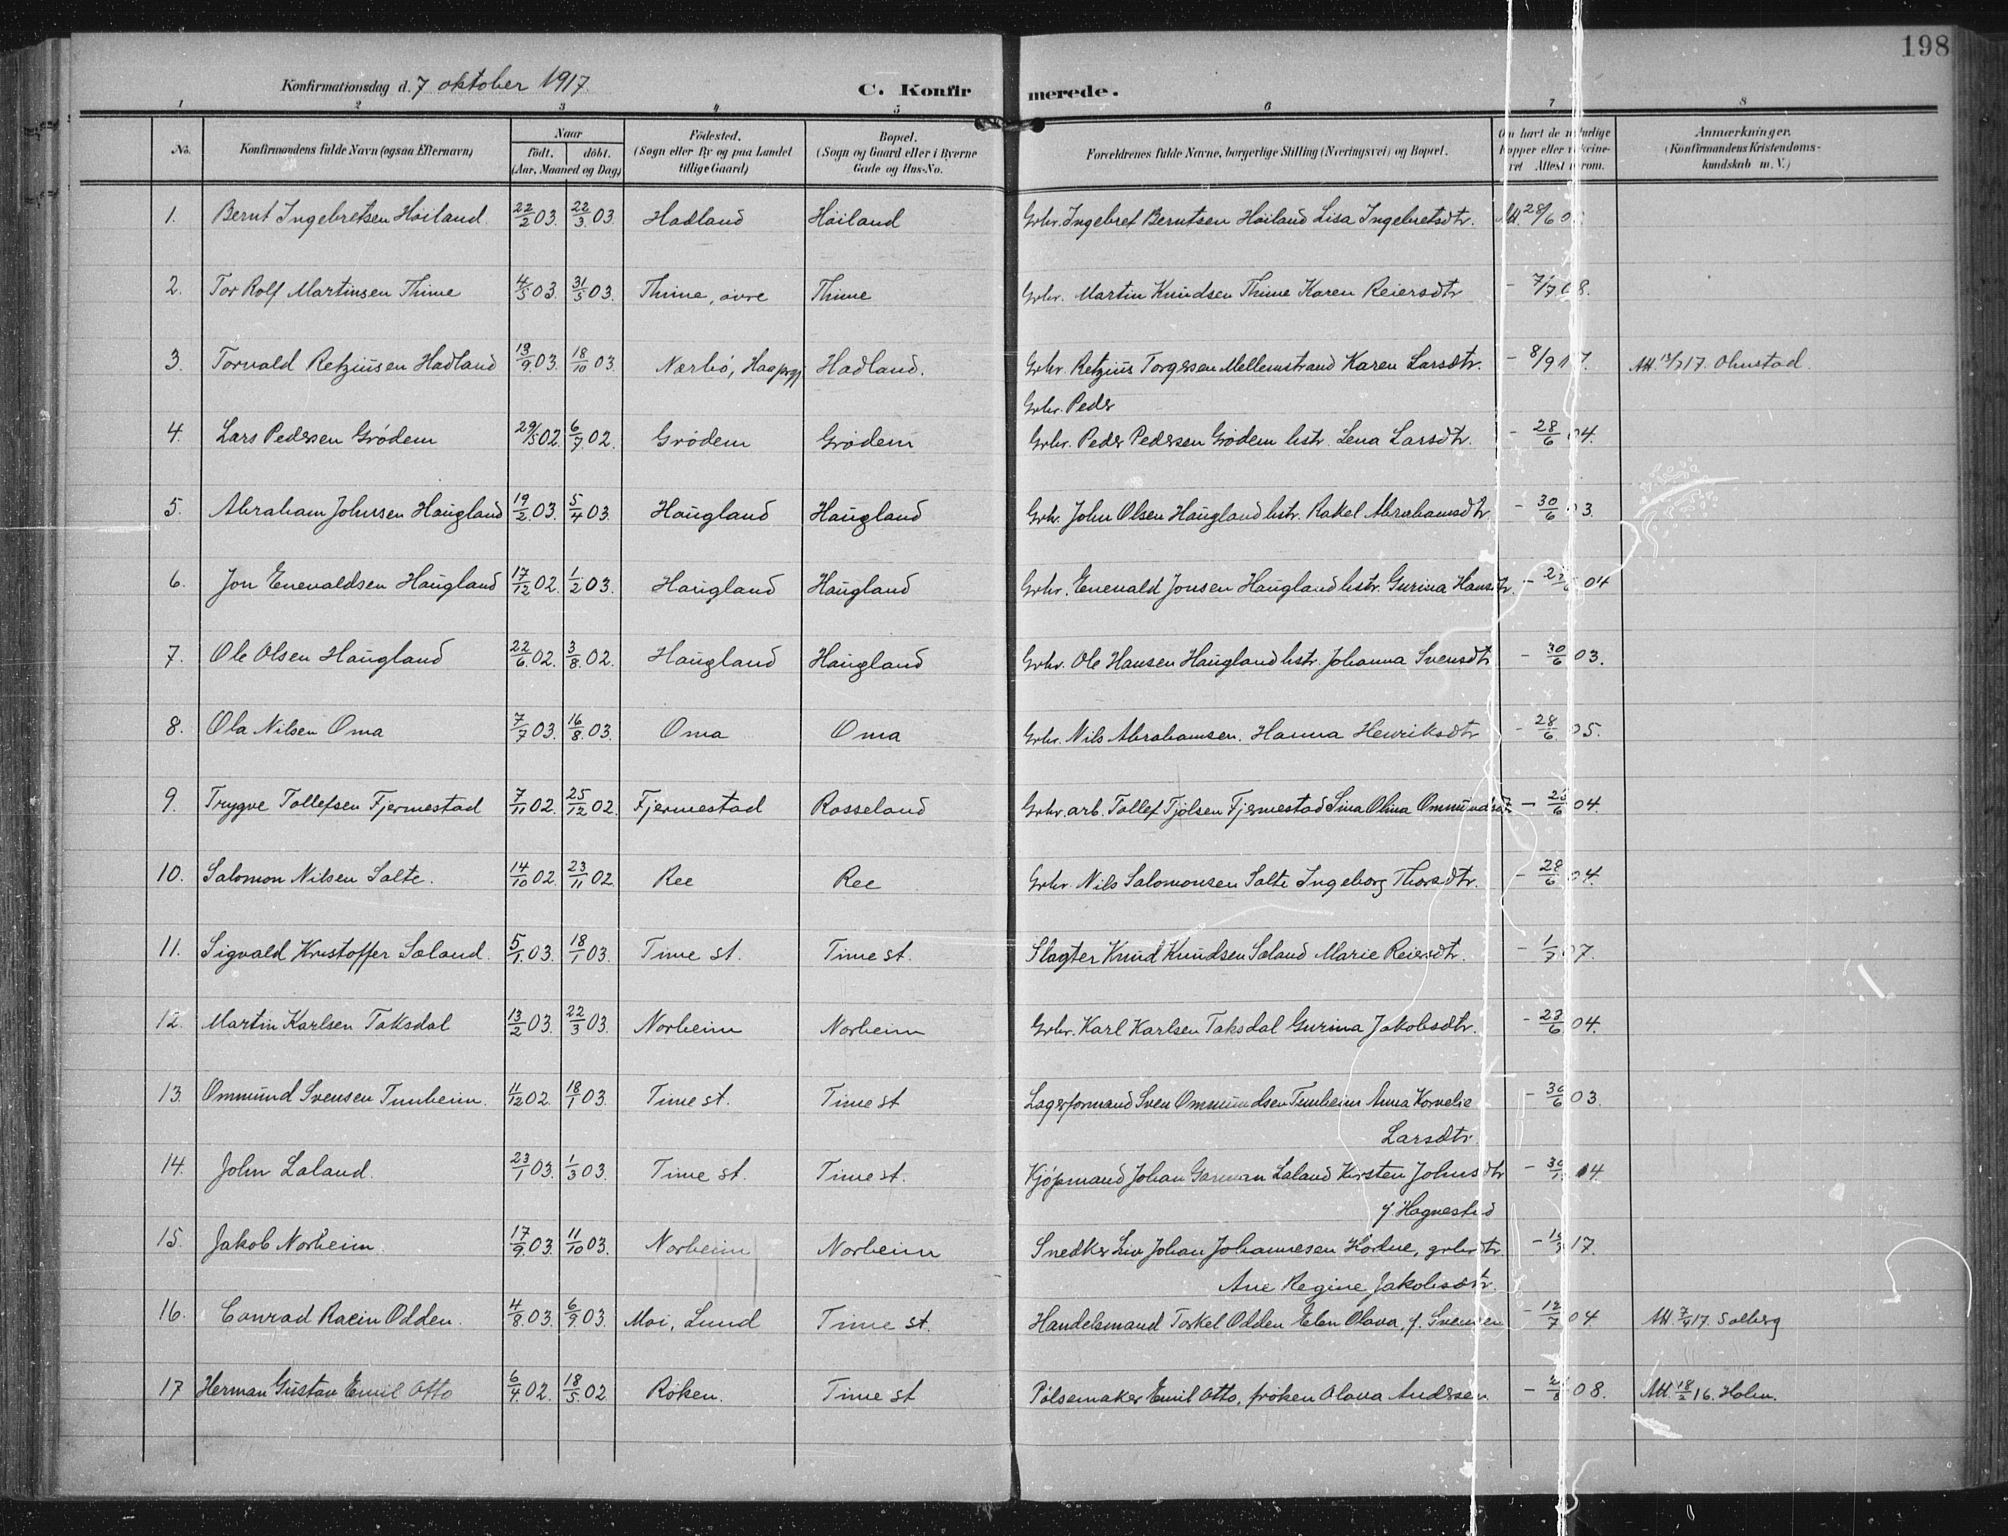 198
Konfirmationsdag d. 7 oktober 1917.
C. Konfirmerede.
1 2 3 4 5 6 7 8
No. Konfirmandens fulde Navn (ogsaa Efternavn) Naar födt. döbt. (Aar, Maaned og Dag) Födested. (Sogn eller By og paa Landet tillige Gaard) Bopæl. (Sogn og Gaard eller i Byerne Gade og Hus-No. Forældrenes fulde Navne, borgerlige Stilling (Næringsvei) og Bopæl. Om havt de naturlige kopper eller vakcineret Attest derom. Anmærkninger. (Konfirmandens Kristendomskundskab m. V.)
1. Bernt Ingebretsen Höiland 22/2 03. 22/3 03. Hadland Höiland Grbr. Ingebret Berntsen Höiland Lisa Ingebretsdtr. Att. 28/6
2. Tor Rolf Martinsen Thime 4/5 03. 31/5 03. Thime, övre Thime Grbr. Martin Knudsen Thime Karen Reiersdtr - 7/7 08.
3. Torvald Retziusen Hadland 13/9 03. 18/10 03. Nærbö, Haa prgj Hadland. Grbr. Retzius Torgersen Mellemstrand Karen Larsdtr. - 8/9 17. Att. 17. Ohnstad.
Grbr. Peder
4. Lars Pedersen Grödem 29/5 02. 6/7 02. Grödem Grödem Grbr. Peder Pedersen Grödem hstr. Lena Larsdtr. - 28/6 04.
5. Abraham Johnsen Haugland 19/2 03. 5/4 03. Haugland Haugland Grbr. John Olsen Haugland hstr. Rakel Abrahamsdtr - 30/6 03.
6. Jon Enevaldsen Haugland 17/12 02. 1/2 03. Haugland Haugland Grbr. Enevald Jonsen Haugland hstr. Gurina Hansdtr. - 04
7. Ole Olsen Haugland 22/6 02. 3/8 02. Haugland Haugland Grbr. Ole Hansen Haugland hstr. Johanna Svensdtr - 30/6 03.
8. Ola Nilsen Oma 7/7 03. 16/8 03. Oma Oma Grbr. Nils Abrahamsen. Hanna Henriksdtr - 28/6 05.
9. Trygve Tollefsen Fjermestad 7/11 02. 25/12 02. Fjermestad Rosseland Grbr. arb. Tollef Tjölsen Fjermestad Sina Olina Ommundsdtr - 28/6 04.
10. Salomon Nilsen Salte. 14/10 02. 23/11 02. Ree Ree Grbr. Nils Salomonsen Salte Ingeborg Thorsdtr. - 28/6 04.
11. Sigvald Kristoffer Sæland. 5/1 03. 18/1 03. Time st. Time st. Slagter Knud Knudsen Sæland Marie Reiersdtr. - 1/7 07.
12. Martin Karlsen Taksdal 13/2 03. 22/3 03. Norheim Norheim Grbr. Karl Karlsen Taksdal Gurina Jakobsdtr. - 28/6 04.
13. Ommund Svensen Tunheim. 11/12 02. 18/1 03. Time st. Time st Lagerformand Sven Ommundsen Tunheim Anna Kornelie - 30/6 03.
Larsdtr
14. John Laland. 23/1 03. 1/3 03. Time st. Time st. Kjöpmand Johan Garman Laland Kirsten Johnsdtr - 04.
f. Hognestad
15. Jakob Norheim. 17/9 03. 11/10 03. Norheim Norheim Snedker Johan Johannesen Hodne, grbrdtr. - 17.
Ane Regine Jakobsdtr.
16. Conrad Racin Odden. 4/8 03. 6/9 03. Moi, Lund Time st. Handelsmand Torkel Odden Elen Olava, f. Svensen - 12/7 04. Att. 7/9 17. Solberg
17 Herman Gustav Emil Otto 6/4 02. 18/5 02. Röken. Time st Pölsemaker Emil Otto, fröken Olava Andersen. - 08. Att. 18/2 16. Holm.